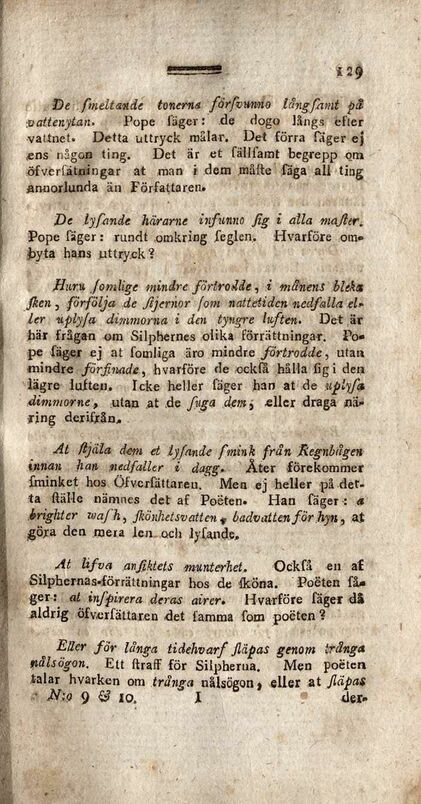 129
De ſmeltande tonerna förſvunno långſamt på
vattenytan. Pope ſäger: de dogo långs efter
vattnet. Detta uttryck målar. Det förra ſäger ej
ens någon ting. Det är et ſällſamt begrepp om
öfverſätningar at man i dem måſte ſäga all ting
annorlunda än Författaren.
De lyſande härarne inſunno ſig i alla maſter.
Pope ſäger: rundt omkring ſeglen. Hvarföre om-
byta hans uttryck?
Huru ſomlige mindre förtrodde, i månens bleka
ſken, förfölja de ſtjernor ſom nattetiden nedfalla el-
ler uplyſa dimmorna i den tyngre luften. Det är
här frågan om Silphernes olika förrättningar. Po-
pe ſäger ej at ſomliga äro mindre förtrodde, utan
mindre förfinade, hvarföre de ockſå hålla ſig i den
lägre luften. Icke heller ſäger han at de uplyſa
dimmorne, utan at de ſuga dem, eller draga nä-
ring derifrån.
At ſtjäla dem et lyſande ſmink från Regnbågen
innan han nedfaller i dagg. Åter förekommer
ſminket hos Öfverſättaren. Men ej heller på det-
ta ſtälle nämnes det af Poëten. Han ſäger: a
brighter waſh, ſkönhetsvatten, badvatten för hyn, at
göra den mera len och lyſande.
At lifva anſiktets munterhet. Ockſå en af
Silphernas förrättningar hos de ſköna. Poëten ſä-
ger: at inſpirera deras airer. Hvarföre ſäger då
aldrig öfverſättaren det ſamma ſom poëten?
Eller för långa tidehvarf ſläpas genom trånga
nålsögon. Ett ſtraff för Silpherna. Men poëten
talar hvarken om trånga nålsögon, eller at ſläpas
N:o 9 & 10. I der-